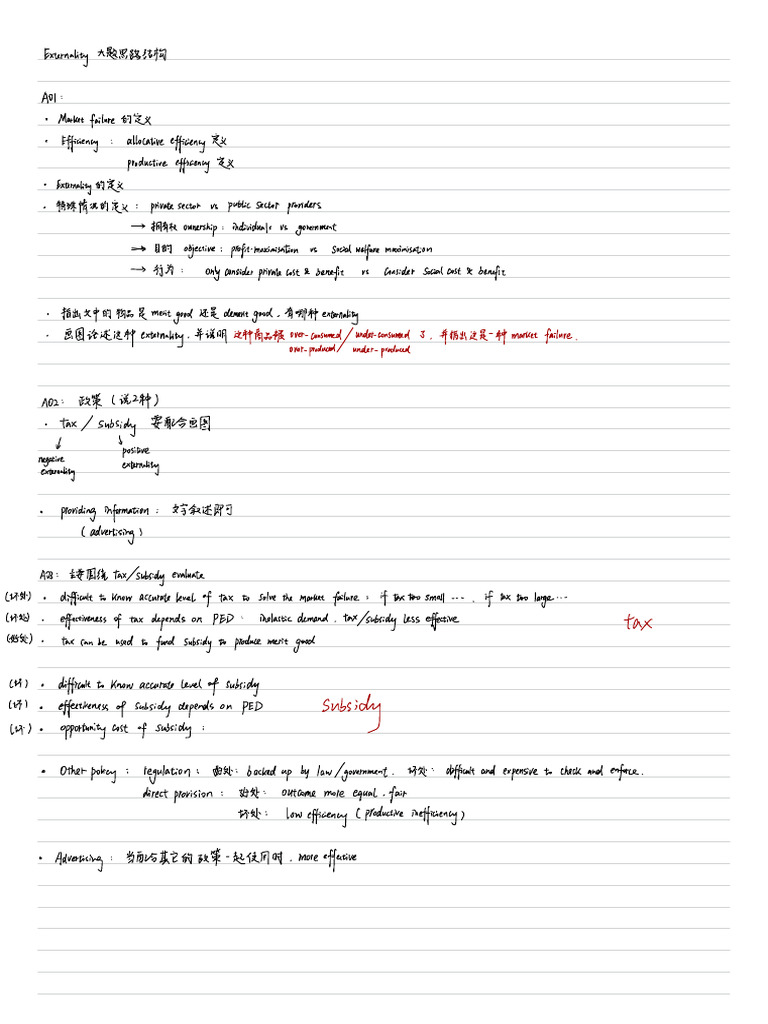 Externality 大题思路结构
A01:
· Market failure 的定义
· Efficiency : allocative efficiency 定义
productive efficiency 定义
· Externality 的定义
· 特殊情况的定义 : private sector vs public sector providers
→ 拥有权 ownership : individuals vs government
→ 目的 objective : profit-maximisation vs Social welfare maximisation
→ 行为 : only consider private cost & benefit vs Consider Social cost & benefit
· 指出文中的物品是 merit good 还是 demerit good, 有哪种 externality
· 画图论述这种 externality, 并说明 这种商品被 over-consumed / under-consumed 了, 并指出这是一种 market failure.
over-produced / under-produced
A02: 政策 (说2种)
· tax / subsidy 要配合画图
↓ ↓
negative externality positive externality
· providing information : 文字叙述即可
(advertising)
A03: 主要围绕 tax/subsidy evaluate
(坏处) · difficult to know accurate level of tax to solve the market failure : if tax too small ..., if tax too large ...
(坏处) · effectiveness of tax depends on PED : inelastic demand, tax/subsidy less effective
tax
(好处) · tax can be used to fund subsidy to produce merit good
(坏) · difficult to know accurate level of subsidy
(坏) · effectiveness of subsidy depends on PED
Subsidy
(坏) · opportunity cost of subsidy :
· Other policy : regulation : 好处: backed up by law/government, 坏处: difficult and expensive to check and enforce.
direct provision : 好处: outcome more equal, fair
坏处: low efficiency (productive inefficiency)
· Advertising : 当与其它的政策一起使用时, more effective